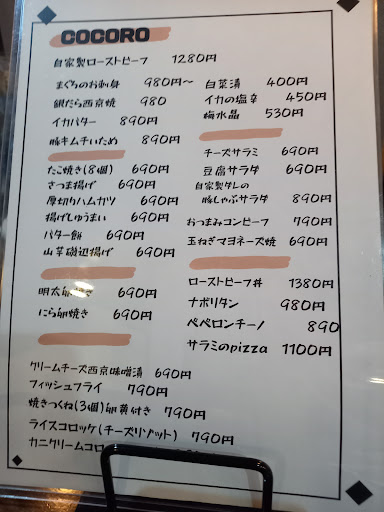 COCORO
自家製ローストビーフ 1280円
まぐろのお刺身 980円～
銀だら西京焼 980
イカバター 890円
豚キムチいため 890円
たこ焼き(8個) 690円
さつま揚げ 690円
厚切りハムカツ 690円
揚げしゅうまい 690円
バター餅 690円
山芋磯辺揚げ 690円
明太卵焼き 690円
にら卵焼き 690円
白菜漬 400円
イカの塩辛 450円
梅水晶 530円
チーズサラミ 690円
豆腐サラダ 690円
自家製タレの
豚しゃぶサラダ 890円
おつまみコンビーフ 790円
玉ねぎマヨネーズ焼 690円
ローストビーフ丼 1380円
ナポリタン 980円
ペペロンチーノ 890
サラミのpizza 1100円
クリームチーズ西京味噌漬 690円
フィッシュフライ 790円
焼きつくね(3個)卵黄付き 790円
ライスコロッケ(チーズリゾット) 790円
カニクリームコロ